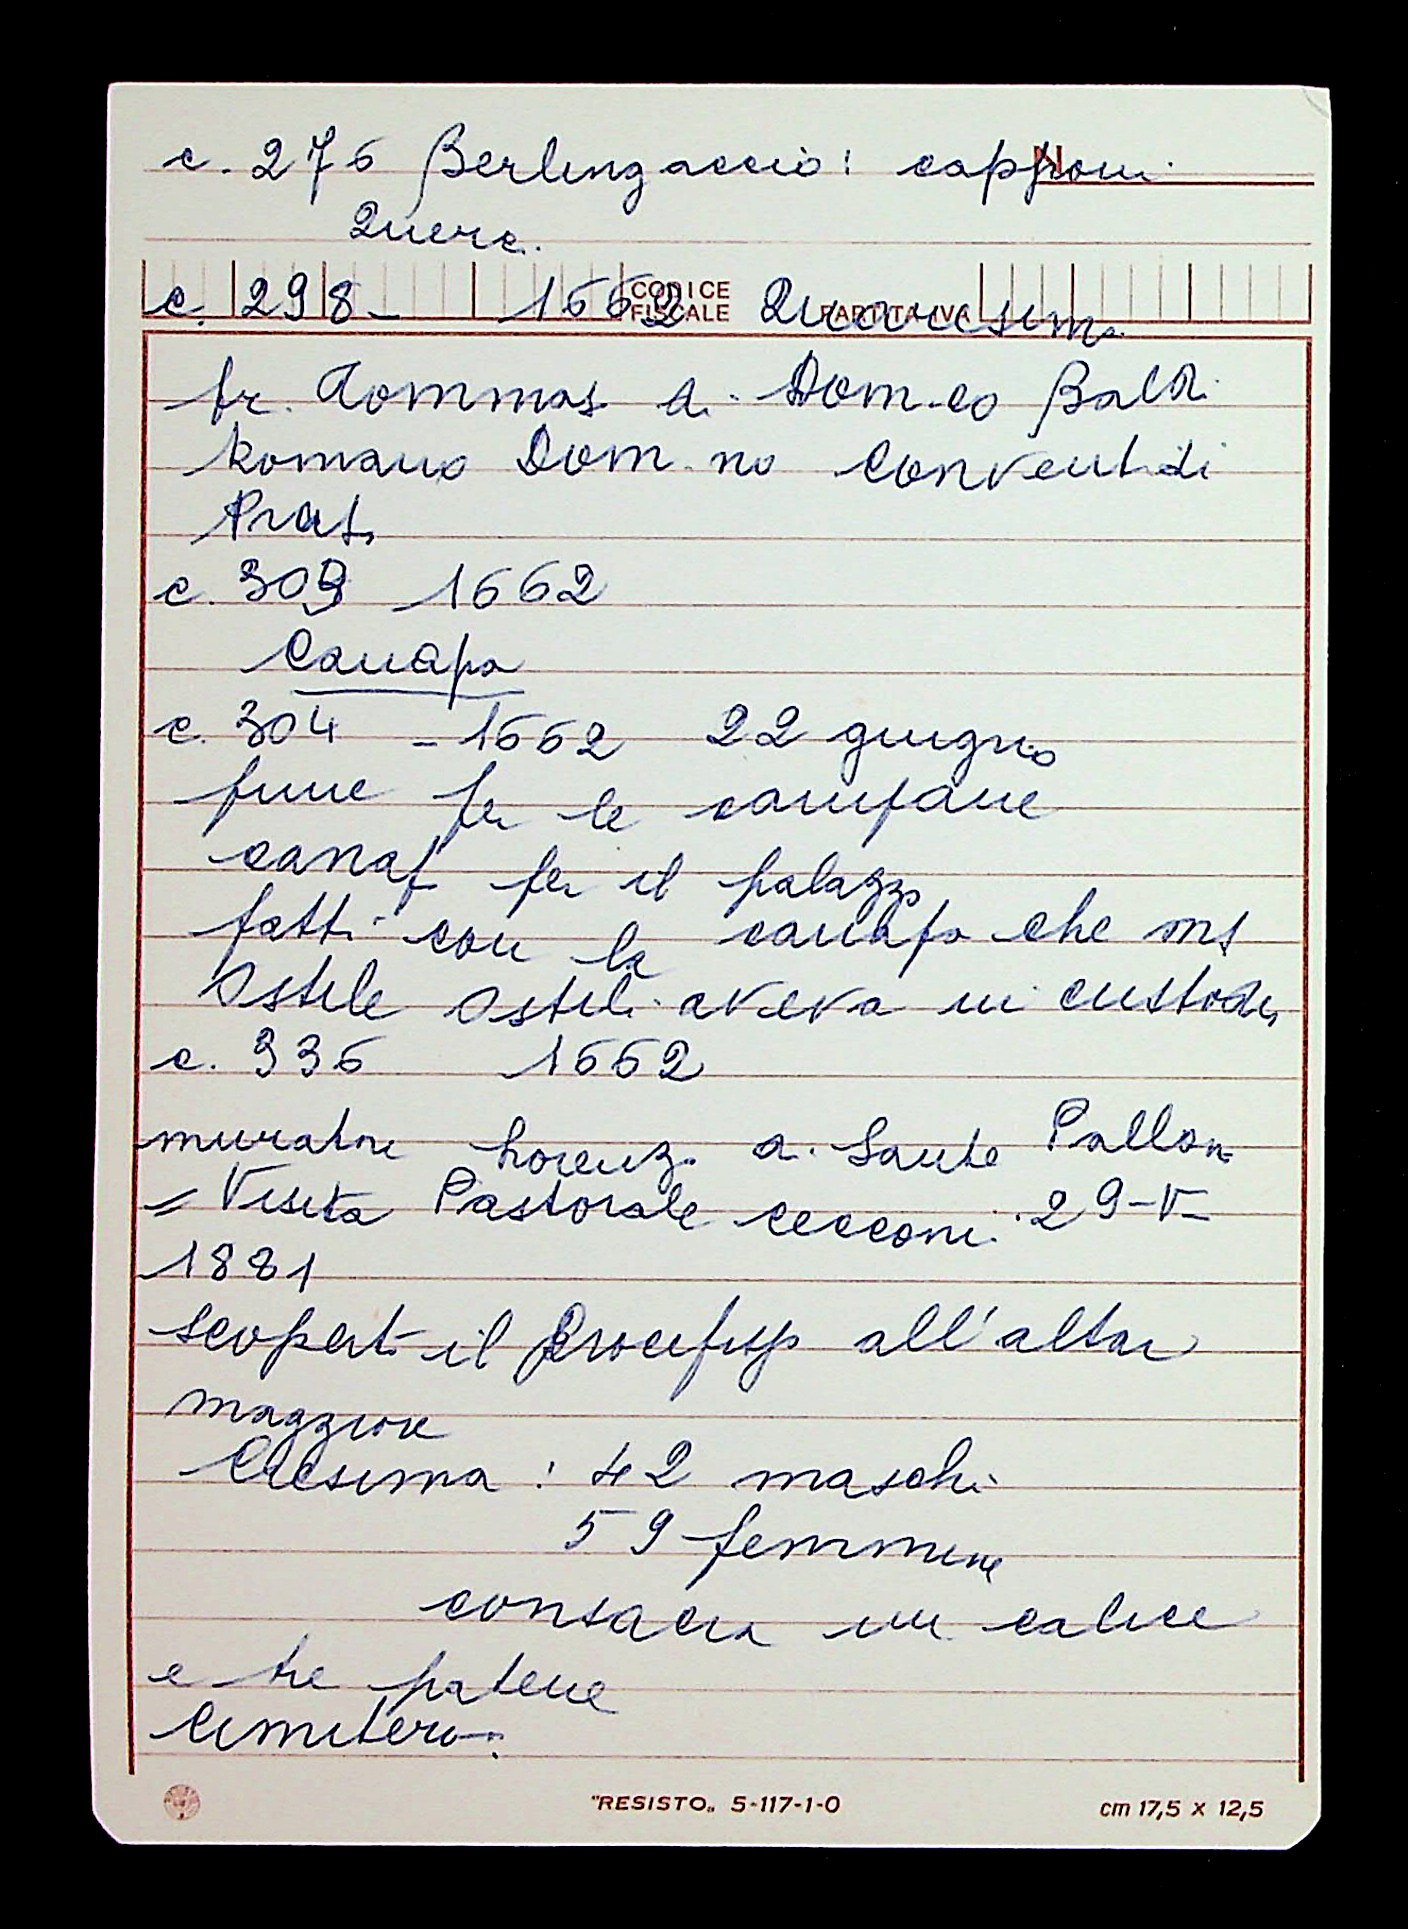 c. 276 Berlingaccio: capponi
Querc.
c. 298 - 1662 Quaresim.
CODICE FISCALE PARTITA IVA
fr. Tommas. di Dom.co Baldi
Romano Dom.no Convent. di
Prat.
c. 303 1662
Canapa
c. 304 - 1662 22 giugno
fune per le campane
canap. per il palazzo
fatti con la canapa che ms
Ostile Ostili aveva in custodi,
c. 336 1662
muratore Lorenz. di Sante Pallon
= Visita Pastorale Cecconi. 29-V-
1881
scopert. il Crocifisso all'altar
maggiore
Cresima: 42 maschi
59 femmine
consacra un calice
e tre patene
Cimitero.
"RESISTO" 5-117-1-0 cm 17,5 x 12,5